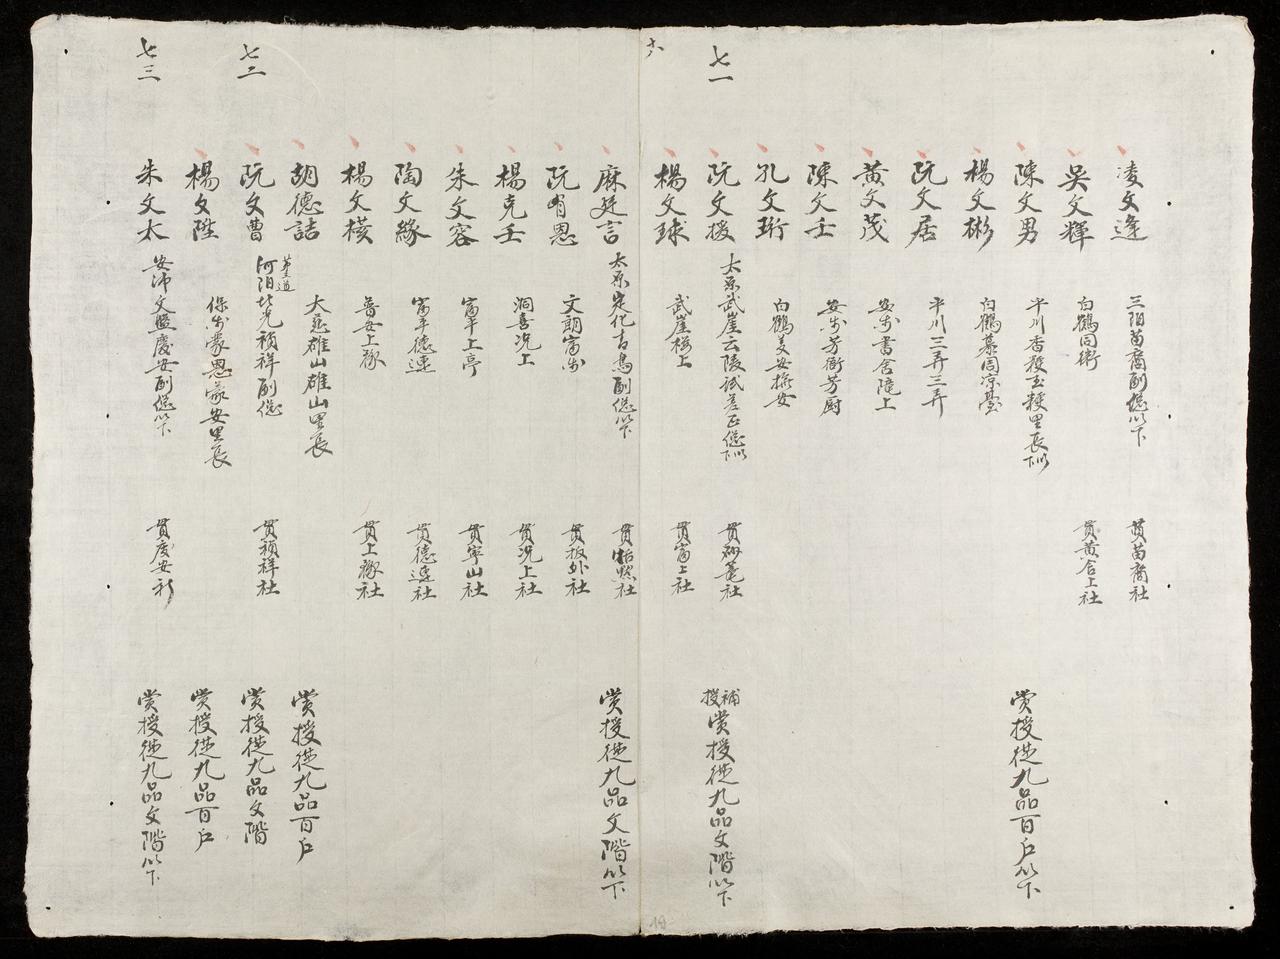 七一
凌文逢 三陽苗裔副總以下 貫苗裔社
吳文輝 白鶴同衛 貫黃舍上社
陳文男 平川香 里長以下 賞授從九品百戶以下
楊文彬 白鶴慕周凉臺
阮文居 平川三弄三弄
黃文茂 安書舍 上
陳文壬 安 芳衛芳厨
孔文珩 白鶴美安 安
阮文援 太原武崖云陵試差正總以下 貫 社 補授賞授從九品文階以下
楊文球 武崖樓上 貫富上社
十八
麻廷言 太原定化古 副總以下 貫 社 賞授從九品文階以下
阮有恩 文朗富 貫板外社
楊克壬 洞喜况上 貫况上社
朱文容 富平上亭 貫寧山社
陶文緣 富平德速 貫德速社
楊文横 普安上 貫上 社
胡德詰 大慈雄山雄山里長 賞授從九品百戶
七二
阮文曹 河陽 北光禎祥副總 貫禎祥社 賞授從九品文階
楊文陞 保 蒙恩蒙安里長 賞授從九品百戶
七三
朱文太 安沛文盤慶安副總以下 貫慶安社 賞授從九品文階以下
19